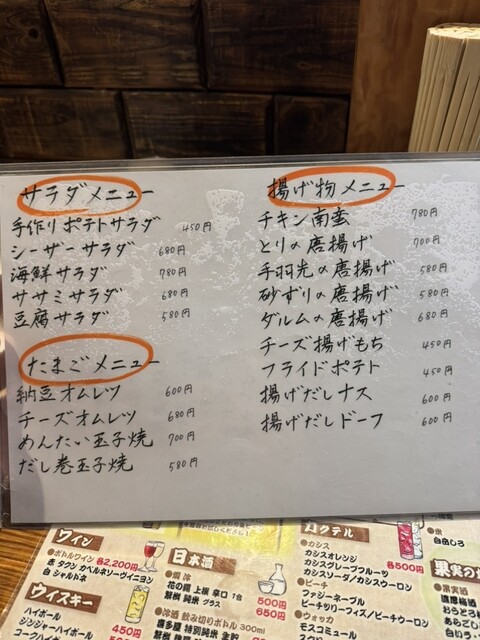 サラダメニュー
手作りポテトサラダ 450円
シーザーサラダ 680円
海鮮サラダ 780円
ササミサラダ 680円
豆腐サラダ 580円
たまごメニュー
納豆オムレツ 600円
チーズオムレツ 680円
めんたい玉子焼 700円
だし巻玉子焼 580円
揚げ物メニュー
チキン南蛮 780円
とりの唐揚げ 700円
手羽先の唐揚げ 580円
砂ずりの唐揚げ 580円
ダルムの唐揚げ 680円
チーズ揚げもち 450円
フライドポテト 450円
揚げだしナス 600円
揚げだしドーフ 600円
ワイン
●ボトルワイン 各2,200円
赤 タクン カベルネソーヴィニヨン
白 シャルドネ
ウイスキー
ハイボール 450円
ジンジャーハイボール
コークハイボール
日本酒
花の露 上撰 辛口 1合 500円
繁桝 純米 グラス 650円
喜多屋 特別純米
カクテル
●カシス 各500円
カシスオレンジ
カシスグレープフルーツ
カシスソーダ/カシスウーロン
●ピーチ
ファジーネーブル
ピーチツリーフィズ/ピーチウーロン
●ウォッカ
モスコミュール
●米
白金しろ
果実の
●果実酒